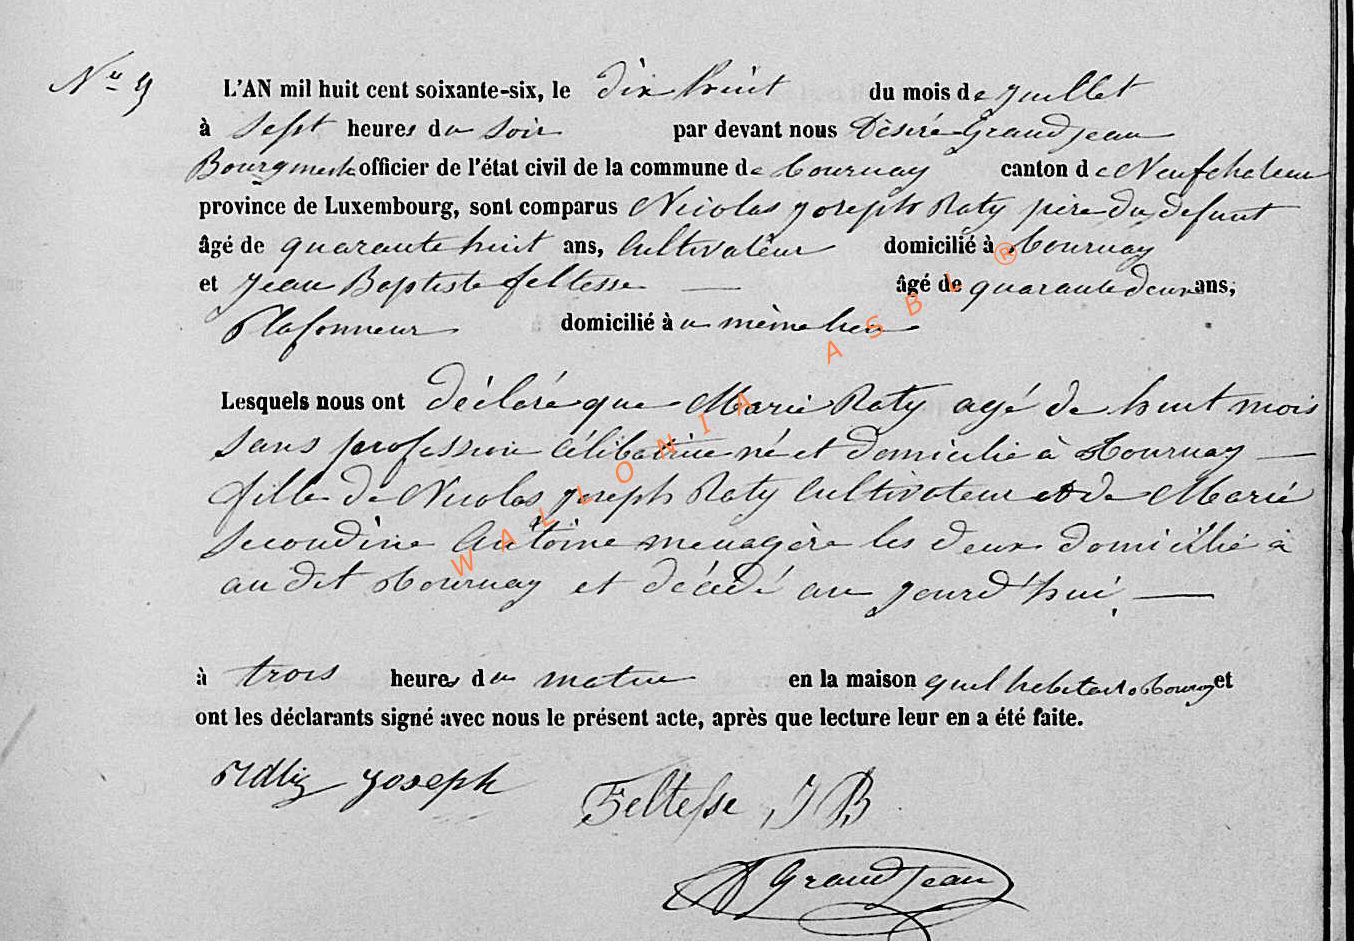 N° 9
L'AN mil huit cent soixante-six, le dix huit du mois de juillet
à sept heures du soir par devant nous Désiré Grandjean
Bourgmestre officier de l'état civil de la commune de Tournay canton de Neufchateau
province de Luxembourg, sont comparus Nicolas joseph Raty père du defunt
âgé de quarante huit ans, Cultivateur domicilié à Tournay
et Jean Baptiste feltesse — âgé de quarante deux ans,
Plafonneur domicilié à u même lieu
Lesquels nous ont déclaré que Marie Raty agé de huit mois
sans profession Célibataire né et domicilié à Tournay —
fille de Nicolas joseph Raty Cultivateur et de Marie
Secondine Antoine menagère les deux domicilié à
au dit Tournay et décédé au jourd'hui —
à trois heures du matin en la maison quil habitait a Tournay et
ont les déclarants signé avec nous le présent acte, après que lecture leur en a été faite.
joseph
Feltesse J B
D Grandjean
WALLONIA ASBL ®